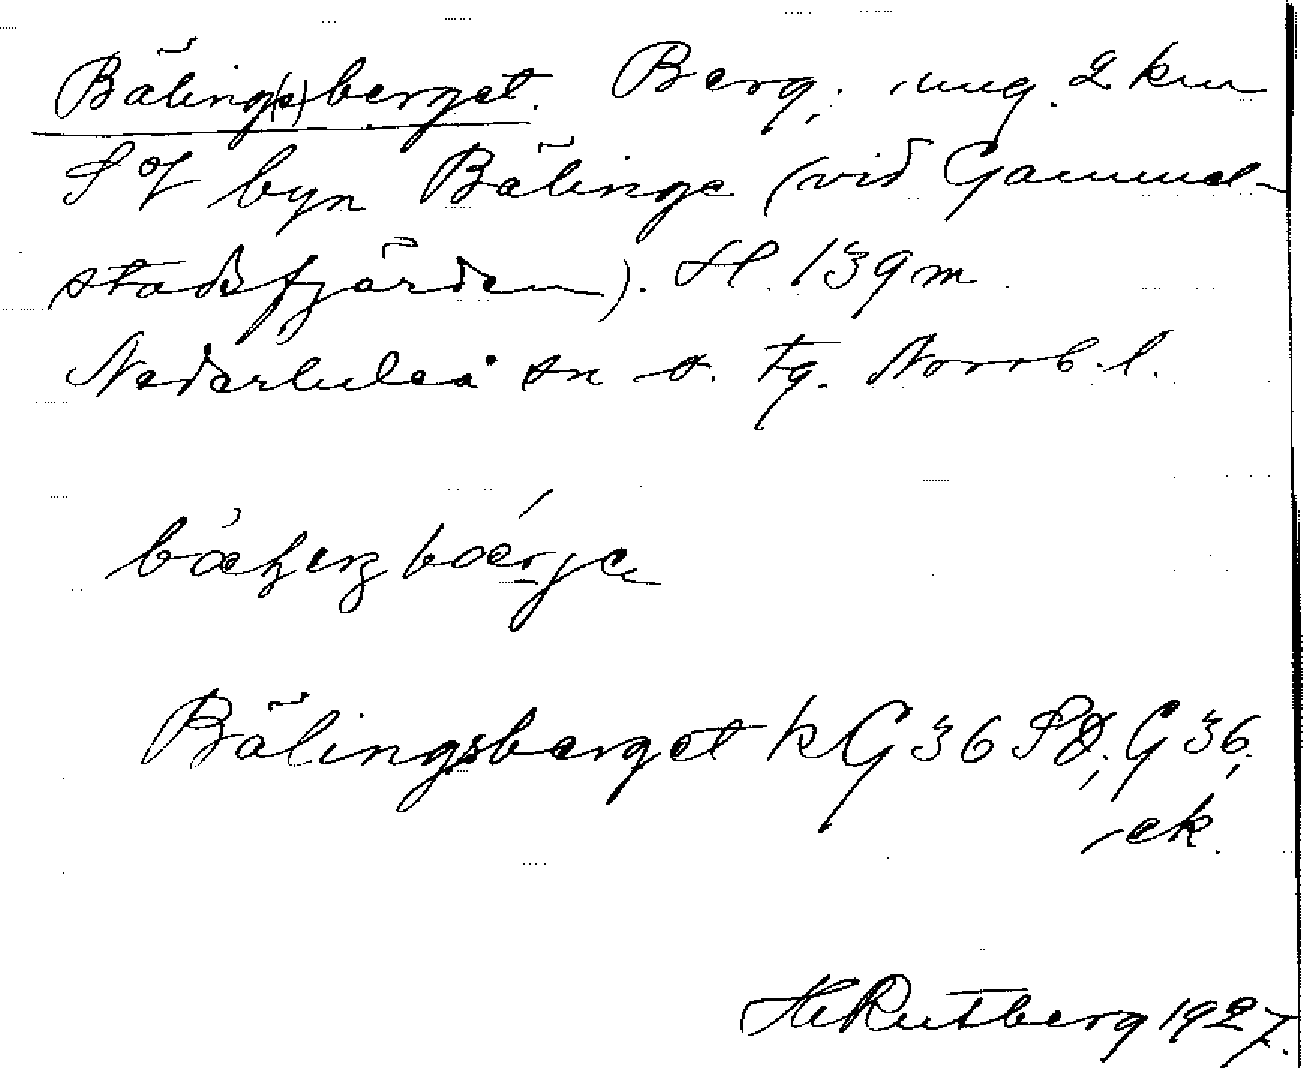 Bäling(s)berget. Berg, ung. 2 km
S of byn Bälinge (vid Gammel-
stadsfjärden). H. 139 m.
Nederluleå sn o. tg. Norrb. l.
Bälingsberget k G 36 SO, G 36,
ek.
H Rutberg 1927.